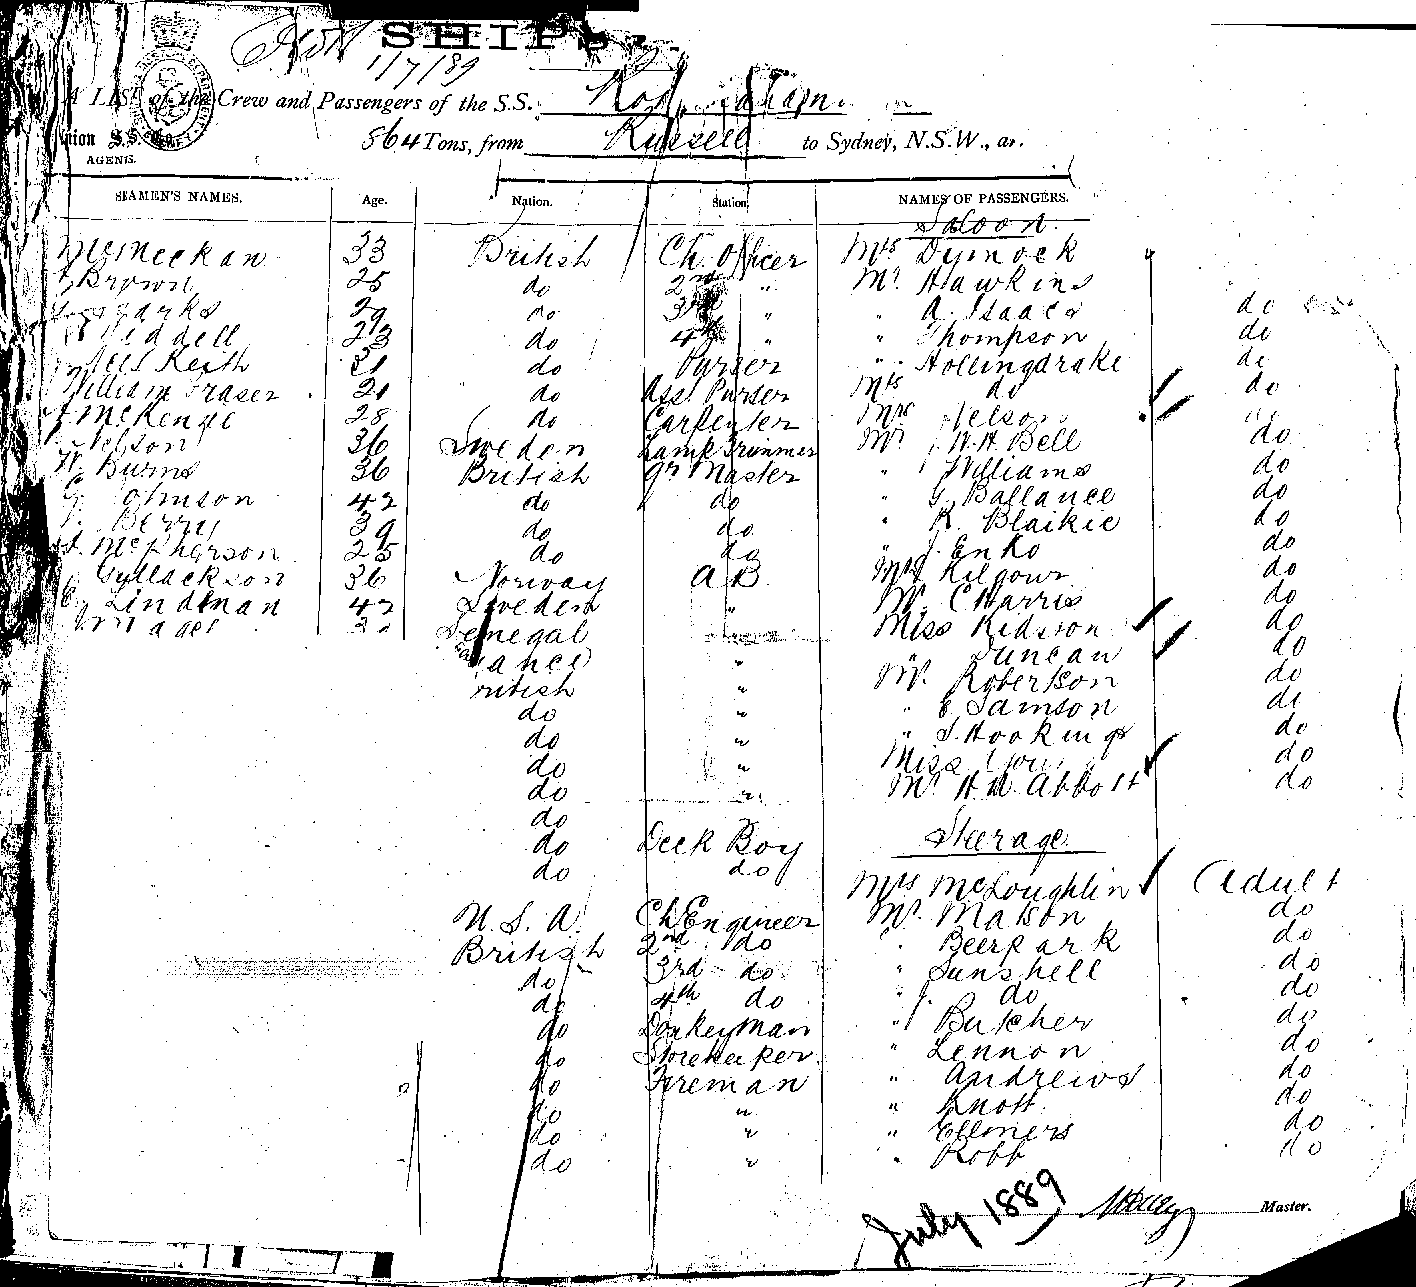 SHIPS
1/7/89
A LIST of the Crew and Passengers of the S.S.
Union S.S. Co. 864 Tons, from Russell to Sydney, N.S.W.,
AGENTS.
SEAMEN'S NAMES. Age. Nation. Station. NAMES OF PASSENGERS.
Saloon
McMeckan 33 British Ch. Officer Mrs Dymock
Brown 25 do 2nd " Mr Hawkins
29 do 3rd " " A. Isaacs do
23 do 4th " " Thompson do
Keith 31 do Purser " Hollingdrake do
William Fraser 21 do Asst Purser Mrs do do
McKenzie 28 do Carpenter Mrs Nelson do
Nelson 36 Sweden Lamp Trimmer Mr W. H. Bell do
Burns 36 British Qr Master " Williams do
Johnson 42 do do " G. Ballance do
Berry 39 do do " R. Blaikie do
McPherson 25 do do " J. Enko do
Gullackson 36 Norway A B Kilgour do
Lindman 42 Sweden " Mr C Harris do
Senegal Miss Kidson do
" " Duncan do
British " Mr Robertson do
do " " E. Samson do
do " " S. Hookings do
do " Miss do
do " Mr H. M. Abbott do
do
do Deck Boy Steerage
do do
Mrs McLoughlin Adult
U. S. A. Ch Engineer Mr Matson do
British 2nd do " Beerpark do
do 3rd do " Sunshell do
do 4th do " J. do do
do Donkeyman " Butcher do
do Storekeeper " Lennon do
do Fireman " Andrews do
do " " Knott do
do " " Ellmers do
do " " Robb do
July 1889 Master.